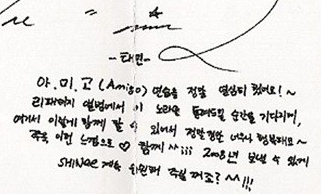 -태민-
아.미.고 (Amigo) 연습을 정말 열심히 했어요! ~
리패키지 앨범에서 이 노래을 들려드릴 순간을 기다리며,
여기서 이렇게 함께 할 수 있어서 정말정말 너무나 행복해요~
쭈욱 이런 느낌으로 ♡ 함께 ^^;;; 2008년 보낼 수 있게
SHINee 계속 하실꺼죠? ^^!!!